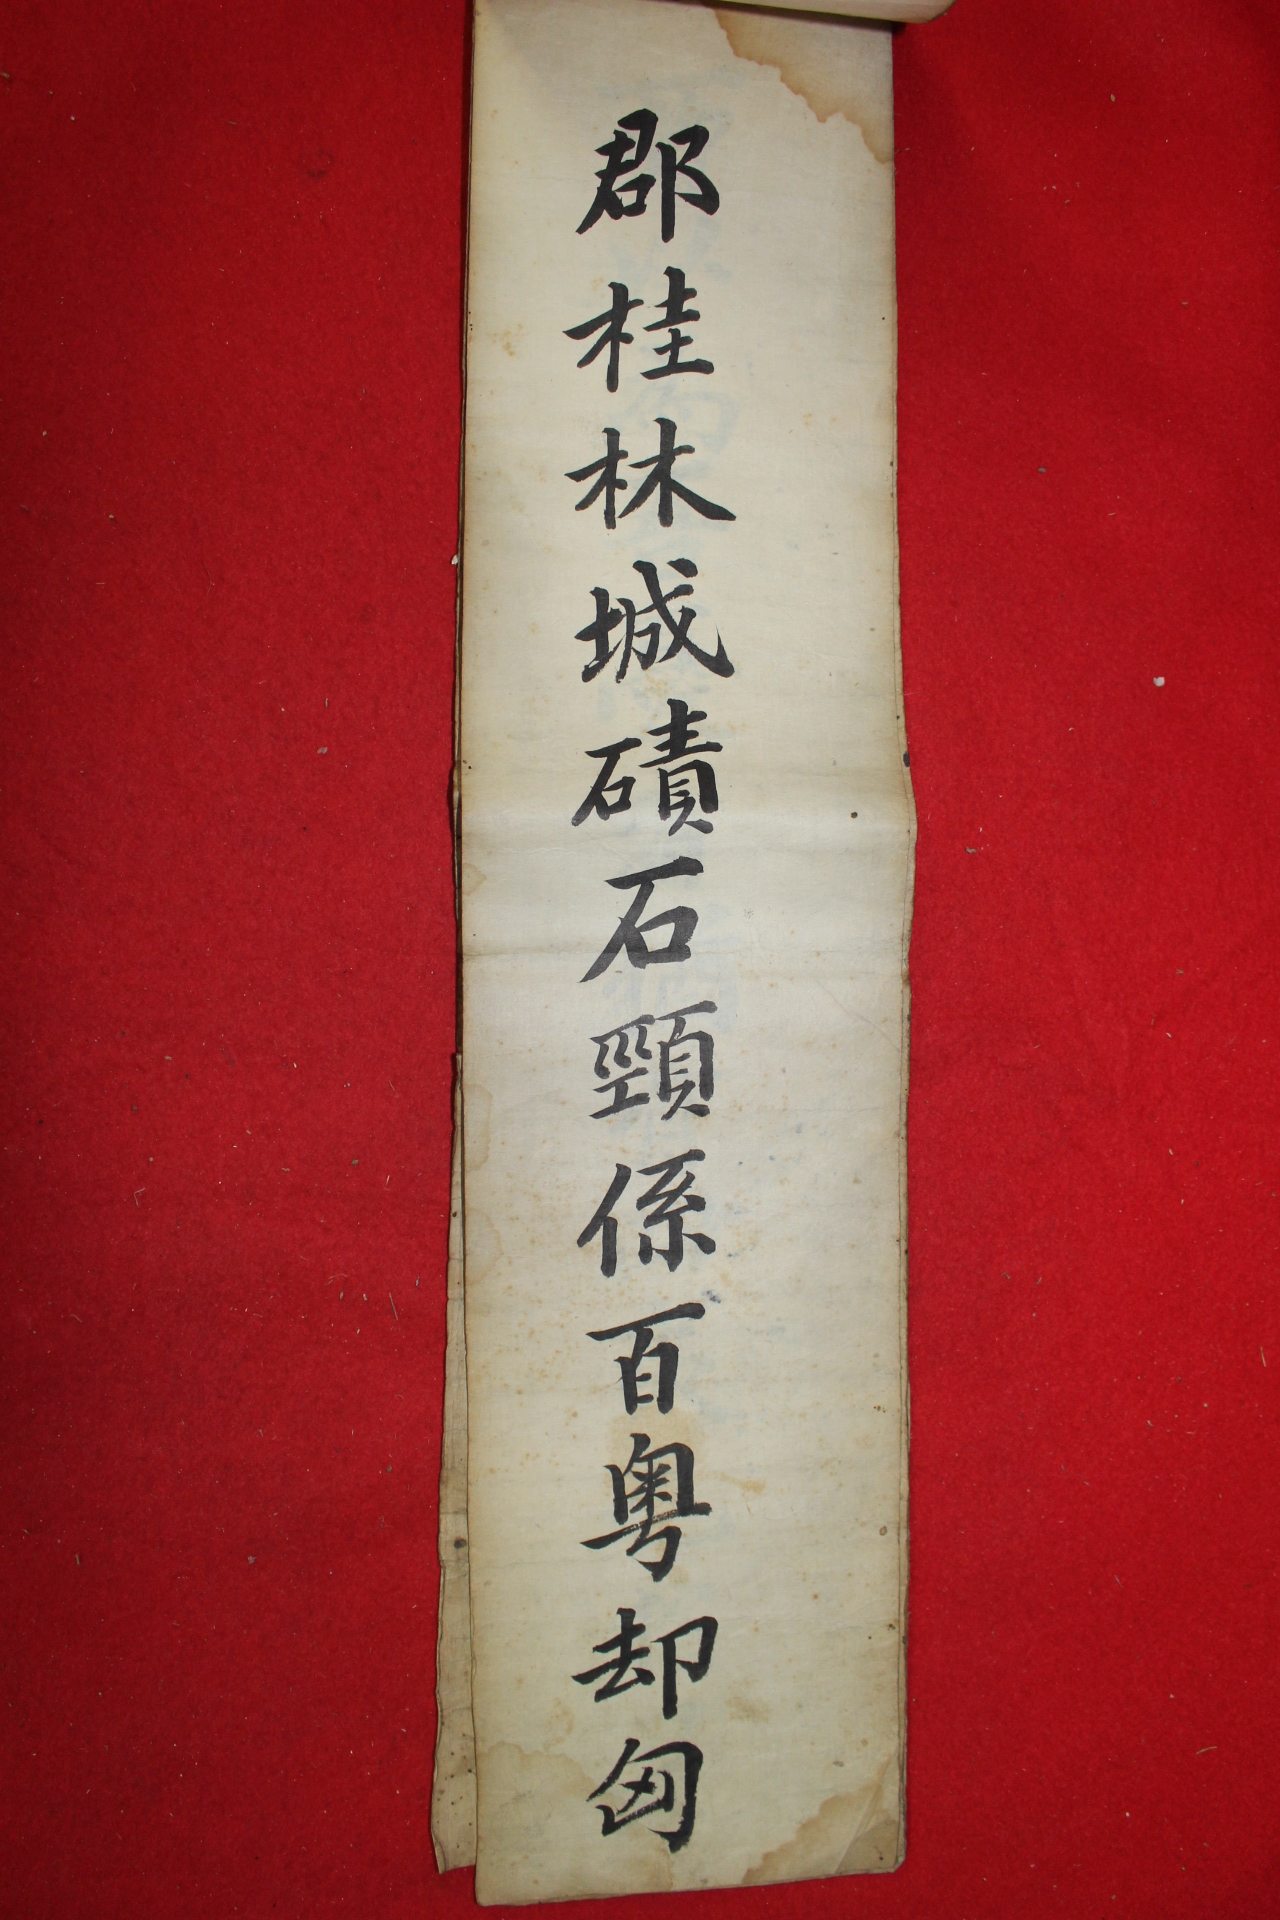 郡桂林城磧石頸係百粤却匈